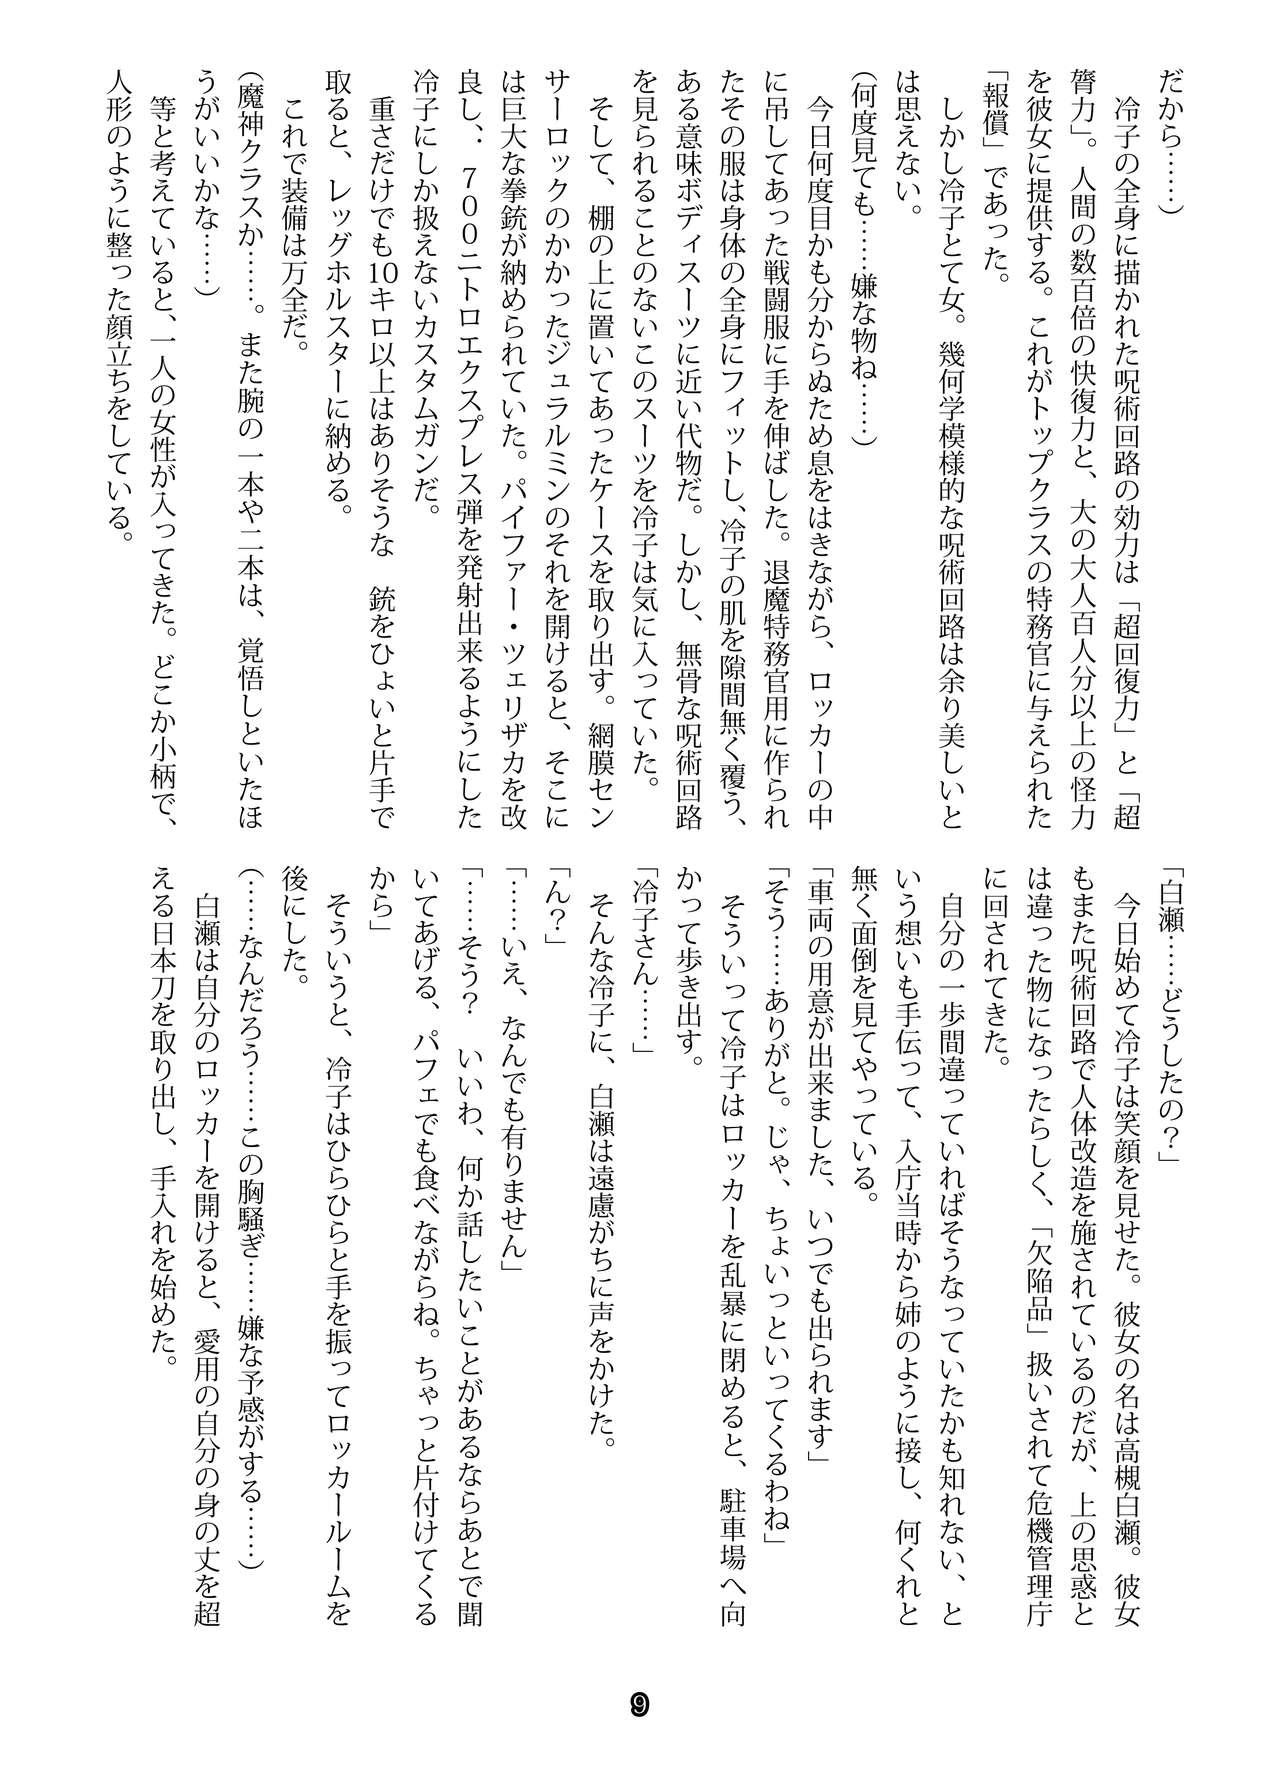 だから……）
　冷子の全身に描かれた呪術回路の効力は「超回復力」と「超
膂力」。人間の数百倍の快復力と、大の大人百人分以上の怪力
を彼女に提供する。これがトップクラスの特務官に与えられた
「報償」であった。
　しかし冷子とて女。幾何学模様的な呪術回路は余り美しいと
は思えない。
（何度見ても……嫌な物ね……）
　今日何度目かも分からぬため息をはきながら、ロッカーの中
に吊してあった戦闘服に手を伸ばした。退魔特務官用に作られ
たその服は身体の全身にフィットし、冷子の肌を隙間無く覆う、
ある意味ボディスーツに近い代物だ。しかし、無骨な呪術回路
を見られることのないこのスーツを冷子は気に入っていた。
　そして、棚の上に置いてあったケースを取り出す。網膜セン
サーロックのかかったジュラルミンのそれを開けると、そこに
は巨大な拳銃が納められていた。パイファー・ツェリザカを改
良し、７００ニトロエクスプレス弾を発射出来るようにした
冷子にしか扱えないカスタムガンだ。
　重さだけでも10キロ以上はありそうな　銃をひょいと片手で
取ると、レッグホルスターに納める。
　これで装備は万全だ。
（魔神クラスか……。また腕の一本や二本は、覚悟しといたほ
うがいいかな……）
　等と考えていると、一人の女性が入ってきた。どこか小柄で、
人形のように整った顔立ちをしている。
「白瀬……どうしたの？」
　今日始めて冷子は笑顔を見せた。彼女の名は高槻白瀬。彼女
もまた呪術回路で人体改造を施されているのだが、上の思惑と
は違った物になったらしく、「欠陥品」扱いされて危機管理庁
に回されてきた。
　自分の一歩間違っていればそうなっていたかも知れない、と
いう想いも手伝って、入庁当時から姉のように接し、何くれと
無く面倒を見てやっている。
「車両の用意が出来ました、いつでも出られます」
「そう……ありがと。じゃ、ちょいっといってくるわね」
　そういって冷子はロッカーを乱暴に閉めると、駐車場へ向
かって歩き出す。
「冷子さん……」
　そんな冷子に、白瀬は遠慮がちに声をかけた。
「ん？」
「……いえ、なんでも有りません」
「……そう？　いいわ、何か話したいことがあるならあとで聞
いてあげる、パフェでも食べながらね。ちゃっと片付けてくる
から」
　そういうと、冷子はひらひらと手を振ってロッカールームを
後にした。
（……なんだろう……この胸騒ぎ……嫌な予感がする……）
　白瀬は自分のロッカーを開けると、愛用の自分の身の丈を超
える日本刀を取り出し、手入れを始めた。
9